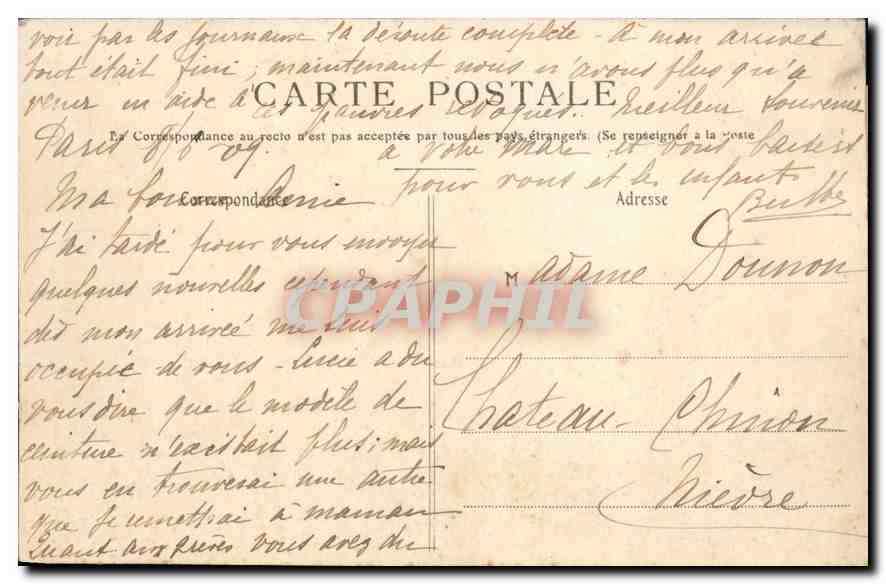 voir par les journaux la déroute complète - à mon arrivée
tout était fini ; maintenant nous n'avons plus qu'à
venir en aide à ces pauvres révoqués. Meilleur souvenir
CARTE POSTALE
La Correspondance au recto n'est pas acceptée par tous les pays étrangers. (Se renseigner à la Poste
Paris 8/6 09. à votre Mari et vous baisers
pour vous et les enfants
Correspondance
Adresse
Ma bonne
J'ai tardé pour vous envoyer
quelques nouvelles cependant
dès mon arrivée me suis
occupée de vous - Lucie a du
vous dire que le modèle de
ceinture n'existait plus ; mais
vous en trouverai une autre
que je remettrai à maman
Quant aux grèves vous avez du
Madame Dounon
Chateau-Chinon
Nièvre
CPAPHIL